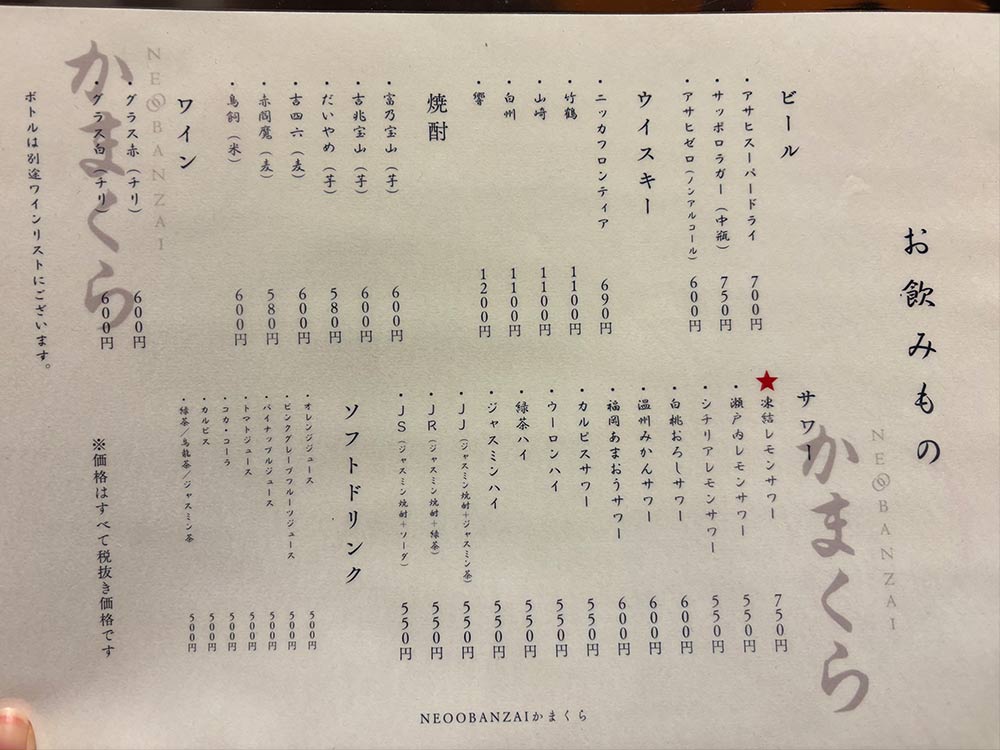 お飲みもの
NEOOBANZAI
かまくら
ビール
・アサヒスーパードライ 700円
・サッポロラガー(中瓶) 750円
・アサヒゼロ(ノンアルコール) 600円
ウイスキー
・ニッカフロンティア 690円
・竹鶴 1100円
・山崎 1100円
・白州 1100円
・響 1200円
焼酎
・富乃宝山(芋) 600円
・吉兆宝山(芋) 600円
・だいやめ(芋) 580円
・吉四六(麦) 600円
・赤閻魔(麦) 580円
・鳥飼(米) 600円
ワイン
・グラス赤(チリ) 600円
・グラス白(チリ) 600円
ボトルは別途ワインリストにございます。
NEOOBANZAI
かまくら
サワー
★・凍結レモンサワー 750円
・瀬戸内レモンサワー 550円
・シチリアレモンサワー 550円
・白桃おろしサワー 600円
・温州みかんサワー 600円
・福岡あまおうサワー 600円
・カルピスサワー 550円
・ウーロンハイ 550円
・緑茶ハイ 550円
・ジャスミンハイ 550円
・JJ(ジャスミン焼酎+ジャスミン茶) 550円
・JR(ジャスミン焼酎+緑茶) 550円
・JS(ジャスミン焼酎+ソーダ) 550円
ソフトドリンク
・オレンジジュース 500円
・ピンクグレープフルーツジュース 500円
・パイナップルジュース 500円
・トマトジュース 500円
・コカ・コーラ 500円
・カルピス 500円
・緑茶/烏龍茶/ジャスミン茶 500円
※価格はすべて税抜き価格です
NEOOBANZAIかまくら